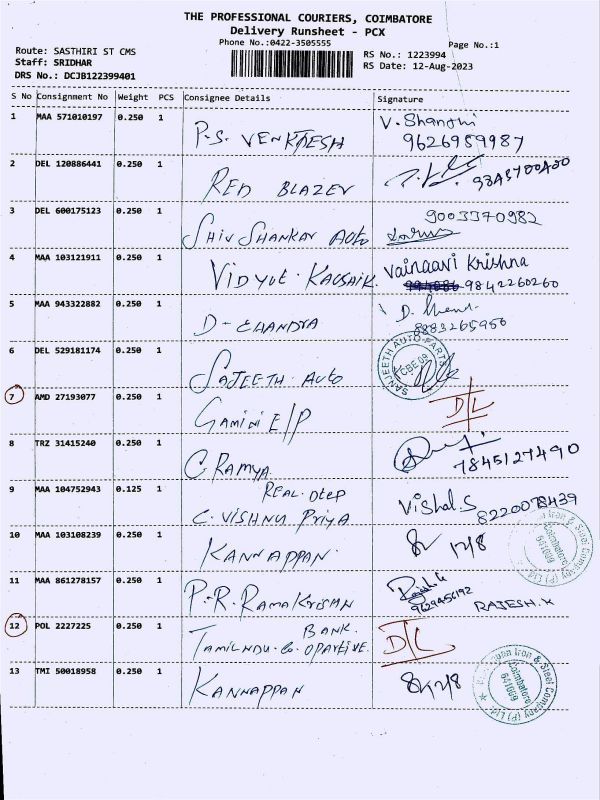 THE PROFESSIONAL COURIERS, COIMBATORE
Delivery Runsheet - PCX
Phone No.:0422-3505555
Page No.:1
Route: SASTHIRI ST CMS
Staff: SRIDHAR
DRS No.: DCJB122399401
RS No.: 1223994
RS Date: 12-Aug-2023
S No Consignment No Weight PCS Consignee Details Signature
1 MAA 571010197 0.250 1 P.S. VENKTESH V. Shanthi
9626959987
2 DEL 120886441 0.250 1 RED BLAZER
3 DEL 600175123 0.250 1 SHIV SHANKAR AUTO 9003370982
4 MAA 103121911 0.250 1 VIDYUT. KAUSHIK. Vainaavi Krishna
9842260260
5 MAA 943322882 0.250 1 D-CHANDRA D.
8883265950
6 DEL 529181174 0.250 1 SAJEETH. AUTO
SANJEETH AUTO PARTS CBE 09
7 AMD 27193077 0.250 1 GAMINI E/P D/L
8 TRZ 31415240 0.250 1 C RAMYA 7845127490
9 MAA 104752943 0.125 1 REAL. DTEP
C. VISHNU PRIYA Vishal.S 8220078439
10 MAA 103108239 0.250 1 KANNAPPAN. 12/8
Iron & Steel Company (P) Ltd. Coimbatore 641009
11 MAA 861278157 0.250 1 P.R. RAMAKRISHAN
RAJESH.K
12 POL 2227225 0.250 1 BANK.
TAMILNDU. CO. OPARTIVE. D/L
13 TMI 50018958 0.250 1 KANNAPPAN 12/8
Iron & Steel Company (P) Ltd. Coimbatore 641009